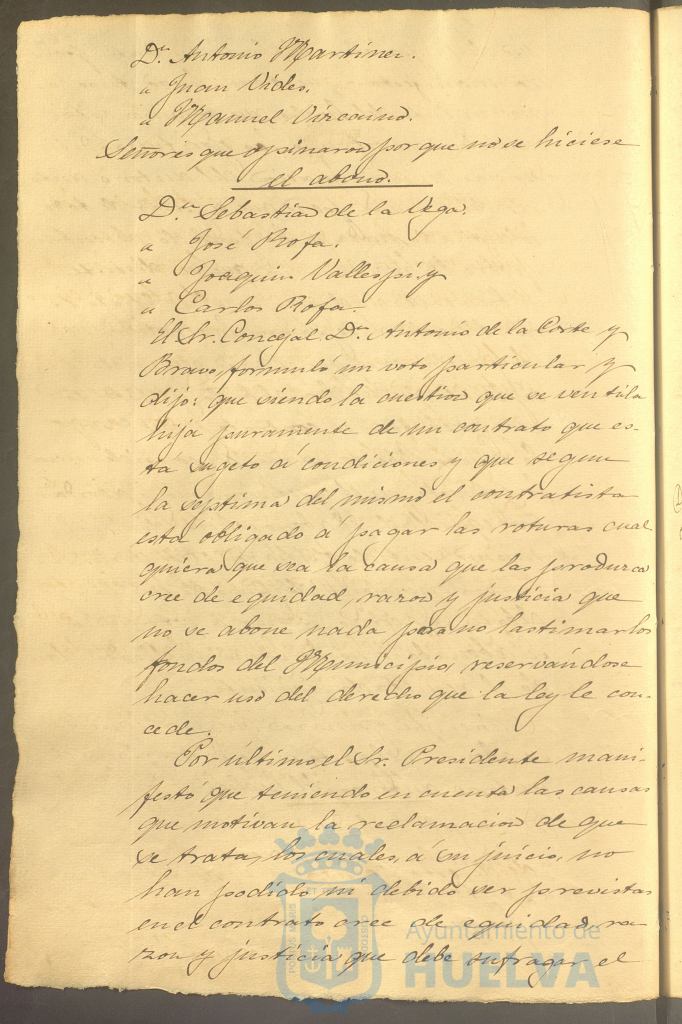 Dn. Antonio Martinez.
" Juan Vides.
" Manuel Vizcaino.
Señores que opinaron por que no se hiciese
el abono.
Dn. Sebastian de la Vega.
" José Rofa.
" Joaquin Vallespi y
" Carlos Rofa.
El Sr. Concejal Dn. Antonio de la Corte y
Bravo, formuló un voto particular y
dijo: que siendo la cuestion que se ventila
hija puramente de un contrato que es-
tá sugeto á condiciones y que segun
la septima del mismo el contratista
está obligado á pagar las roturas cual
quiera que sea la causa que las produzca
cree de equidad, razon y justicia que
no se abone nada para no lastimar los
fondos del Municipio, reservándose
hacer uso del derecho que la ley le con-
cede.
Por último, el Sr. Presidente mani-
festó que teniendo en cuenta las causas
que motivan la reclamacion de que
se trata, los cuales, á su juicio, no
han podido ni debido ser previstas
en el contrato cree de equidad, ra-
zon y justicia que debe sufragar el
Ayuntamiento de
HUELVA